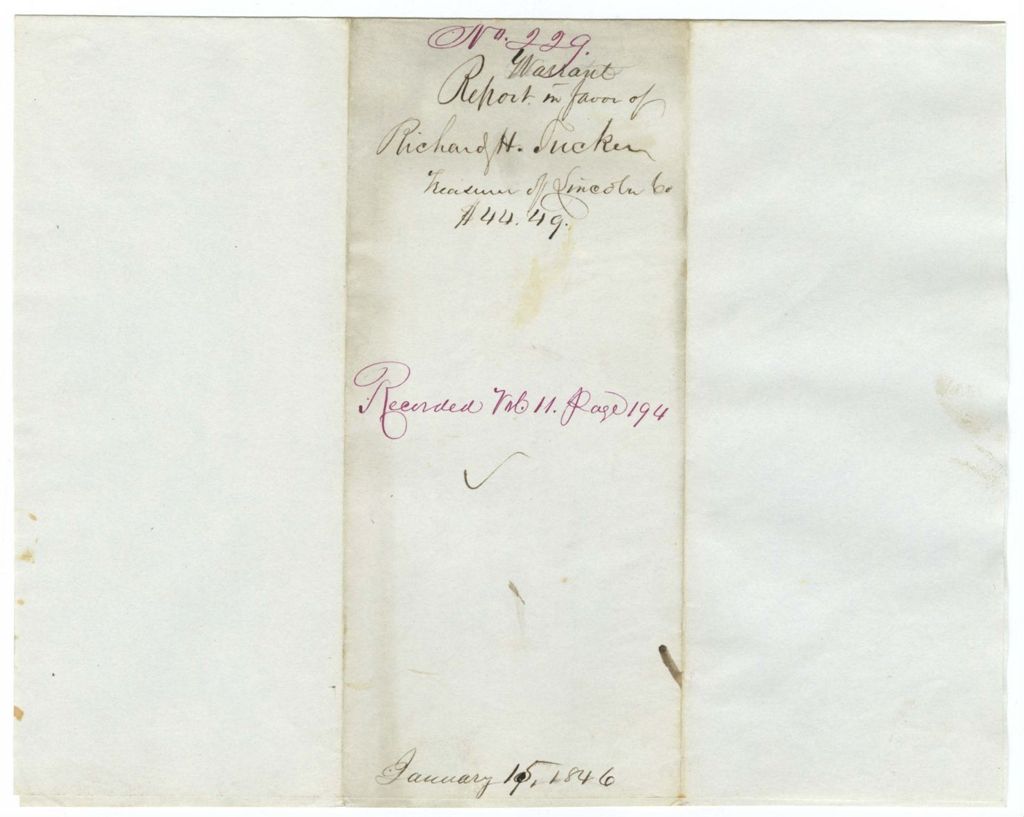 No. 229.
Warrant
Report in favor of
Richard H. Tucker
Treasurer of Lincoln Co
$44.49.
Recorded Vol 11. Page 194
January 15, 1846